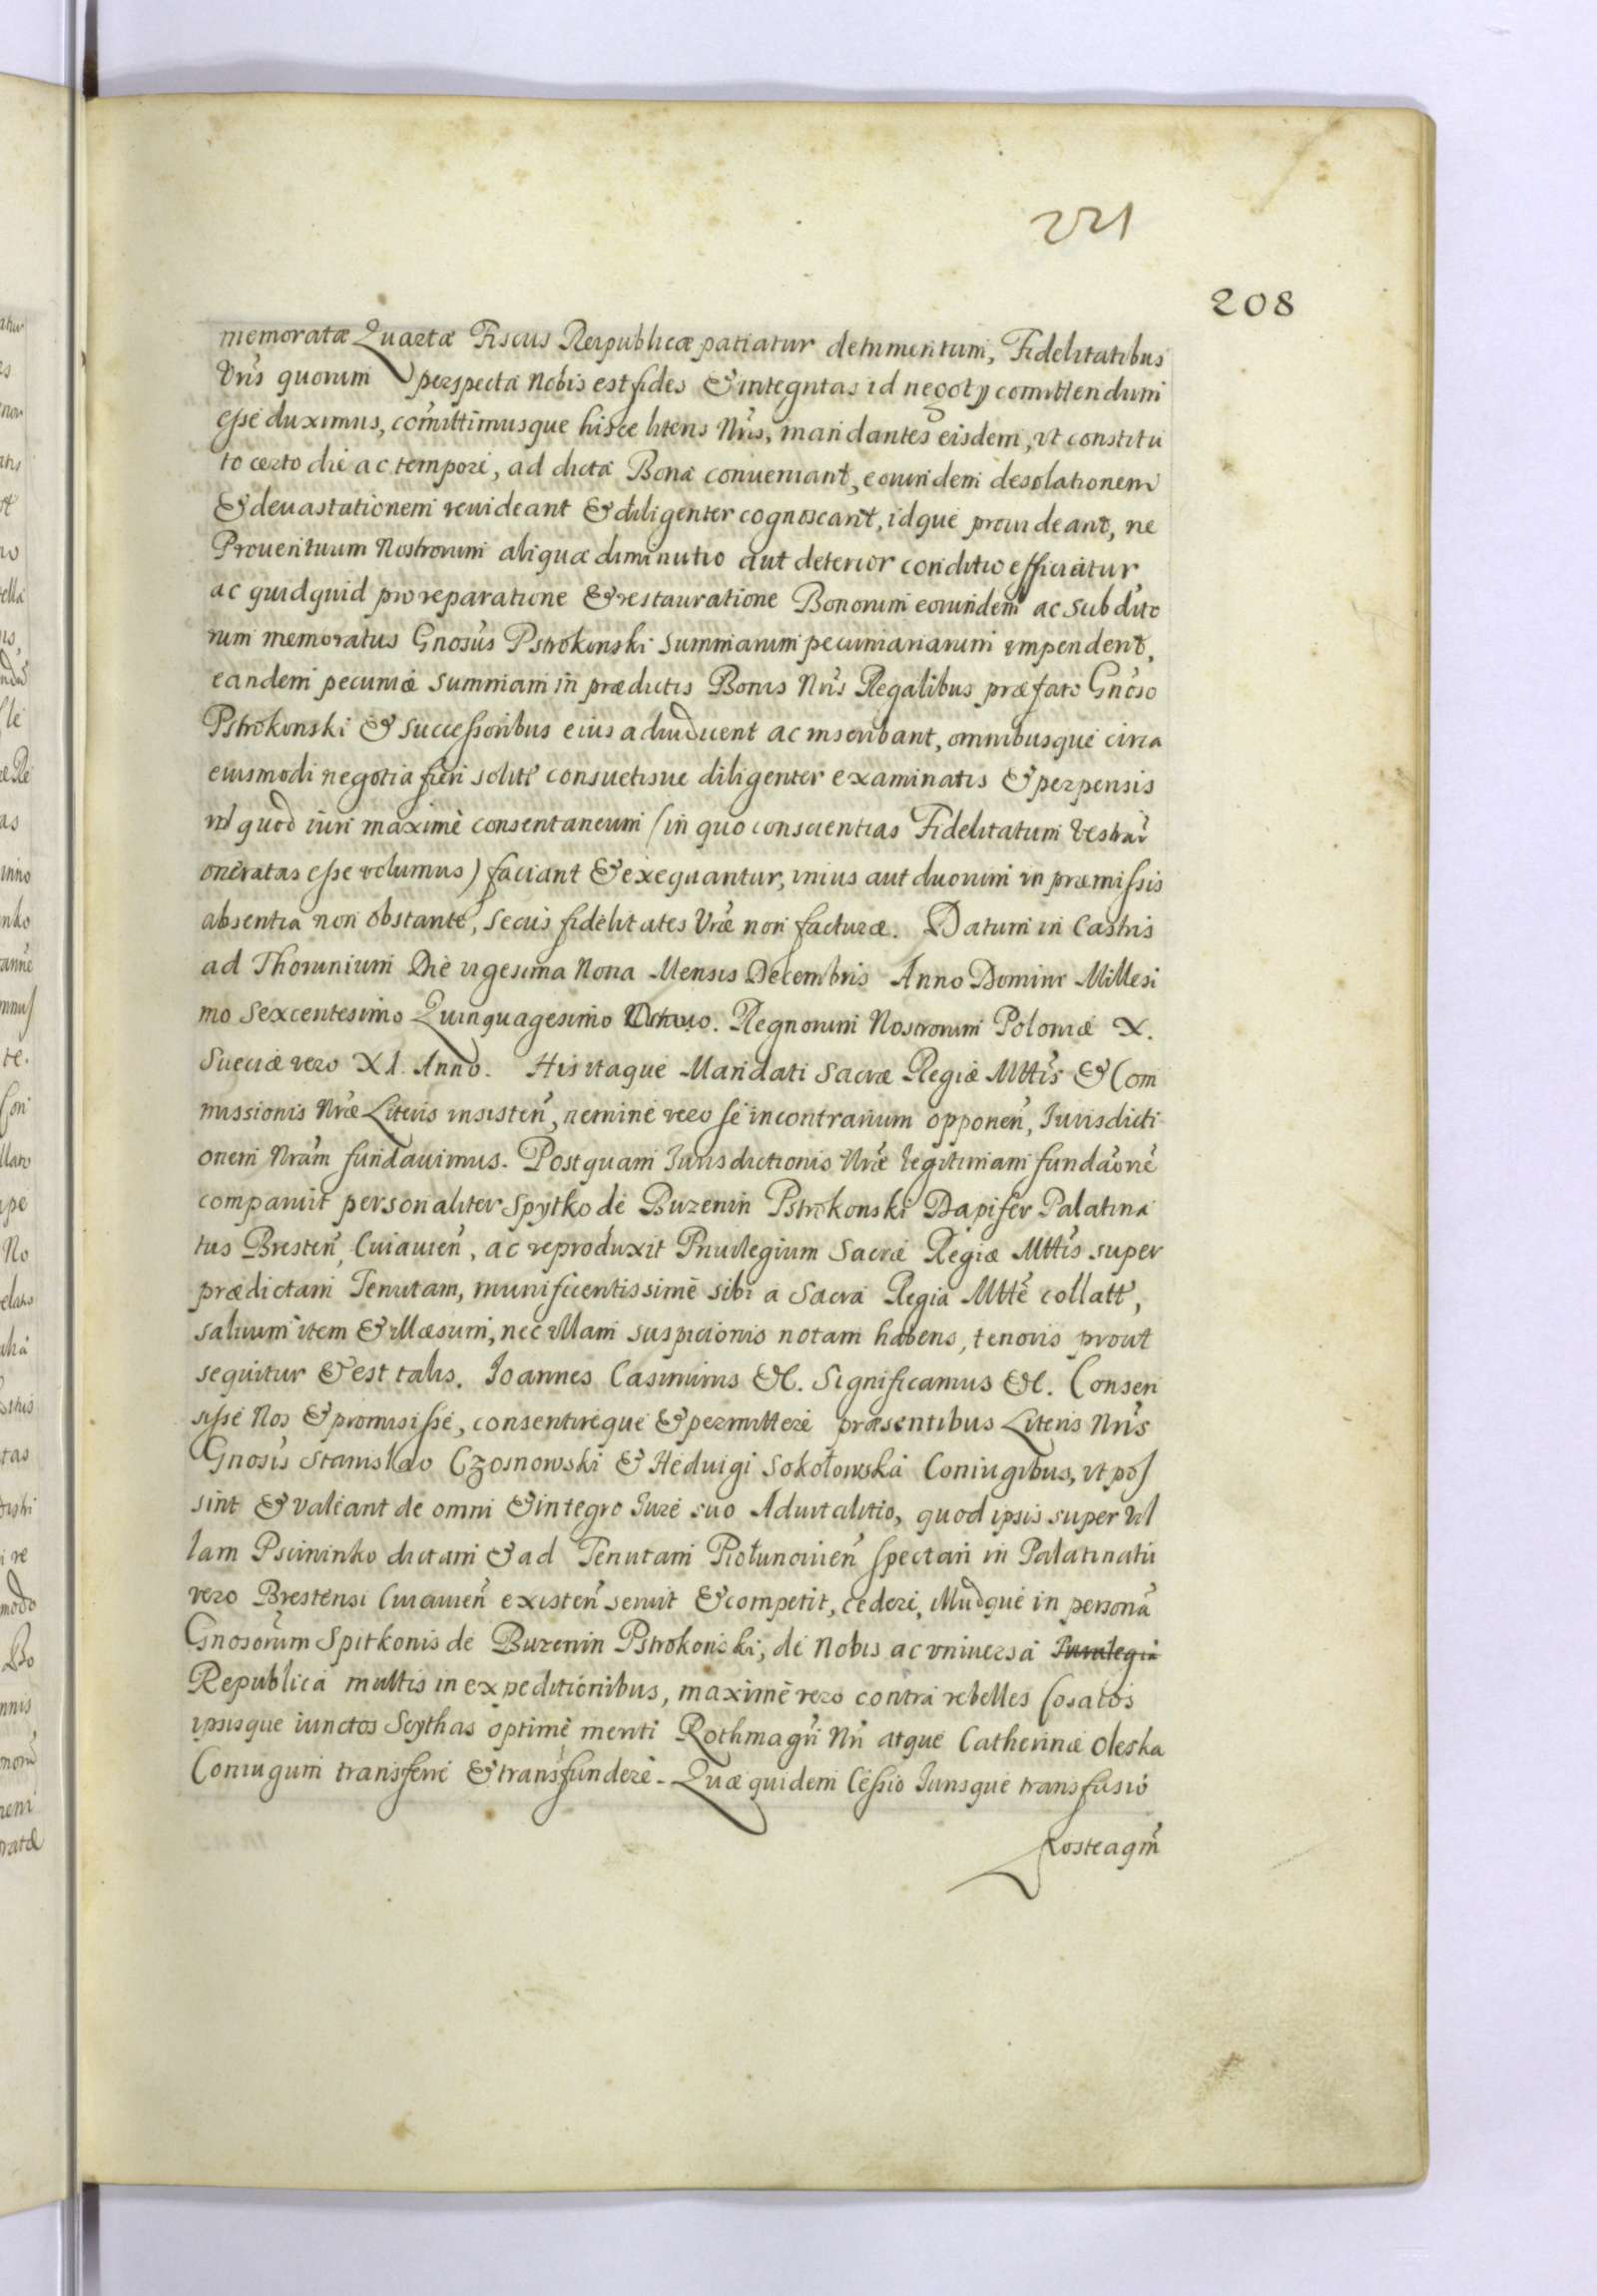 221
208
memoratæ Quartæ Fiscus Reipublicæ patiatur detrimentum, Fidelitatibus
Vris quorum perspecta Nobis est fides & integritas id negoty comittendum
esse duximus, comittimusque hisce literis Nris, mandantes eisdem, vt constitu
to certo die ac tempore, ad dicta Bona conueniant, eorundem desolationem
& deuastationem reuideant & diligenter cognoscant, idque prouideant, ne
Prouentuum Nostrorum aliqua diminutio aut deterior conditio efficiatur
ac quidquid pro reparatione & restauratione Bonorum eorundem ac subdito
rum memoratus Gnosus Pstrokonski summarum pecuniariarum impenderit,
eandem pecuniæ summam in prædictis Bonis Nris Regalibus præfato Gnoso
Pstrokonski & successoribus eius adiudicent ac inscribant, omnibusque circa
eiusmodi negotia fieri solitis consuetisue diligenter examinatis & perpensis
id quod iuri maximè consentaneum (in quo conscientias Fidelitatum Vestrar
oneratas esse volumus) faciant & exequantur, unius aut duorum in præmissis
absentia non obstante, secus fidelitates Vræ non facturæ. Datum in Castris
ad Thorunium Die vigesima Nona Mensis Decembris Anno Domini Millesi
mo Sexcentesimo Quinquagesimo Octauo. Regnorum Nostrorum Poloniæ X.
Sueciæ vero XI. Anno. His itaque Mandati Sacræ Regiæ Mttis & Com
missionis Nræ Literis insisten, nemine vero se in contrarium opponen, Iurisdicti
onem Nram fundauimus. Postquam Iurisdictionis Nræ legitimam fundaone
comparuit personaliter Spytko de Buzenin Pstrokonski Dapifer Palatina
tus Bresten, Cuiauien, ac reproduxit Priuilegium Sacræ Regiæ Mttis super
prædictam Tenutam, munificentissimè sibi a Sacra Regia Mtte collatt,
saluum item & illæsum, nec ullam suspicionis notam habens, tenoris prout
sequitur & est talis. Ioannes Casimirus &c. Significamus &c. Consen
sisse Nos & promisisse, consentireque & permittere præsentibus Literis Nris
Gnosis Stanislao Czosnowski & Heduigi Sokołowska Coniugibus, vt pos
sint & valeant de omni & integro Iure suo Aduitalitio, quod ipsis super Vil
lam Pscininko dictam & ad Tenutam Piołunouien spectan in Palatinatu
vero Brestensi Cuiauien existen seruit & competit, cedere, illudque in personã
Gnosorum Spitkonis de Buzenin Pstrokonski, de Nobis ac vniuersa Priuilegia
Republica multis in expeditionibus, maximè vero contra rebelles Cosacos
ipsisque iunctos Scythas optimè meriti Rothmagri Nri atque Catherinæ Oleska
Coniugum transferre & transfundere. Quæ quidem Cessio Iurisque transfusio